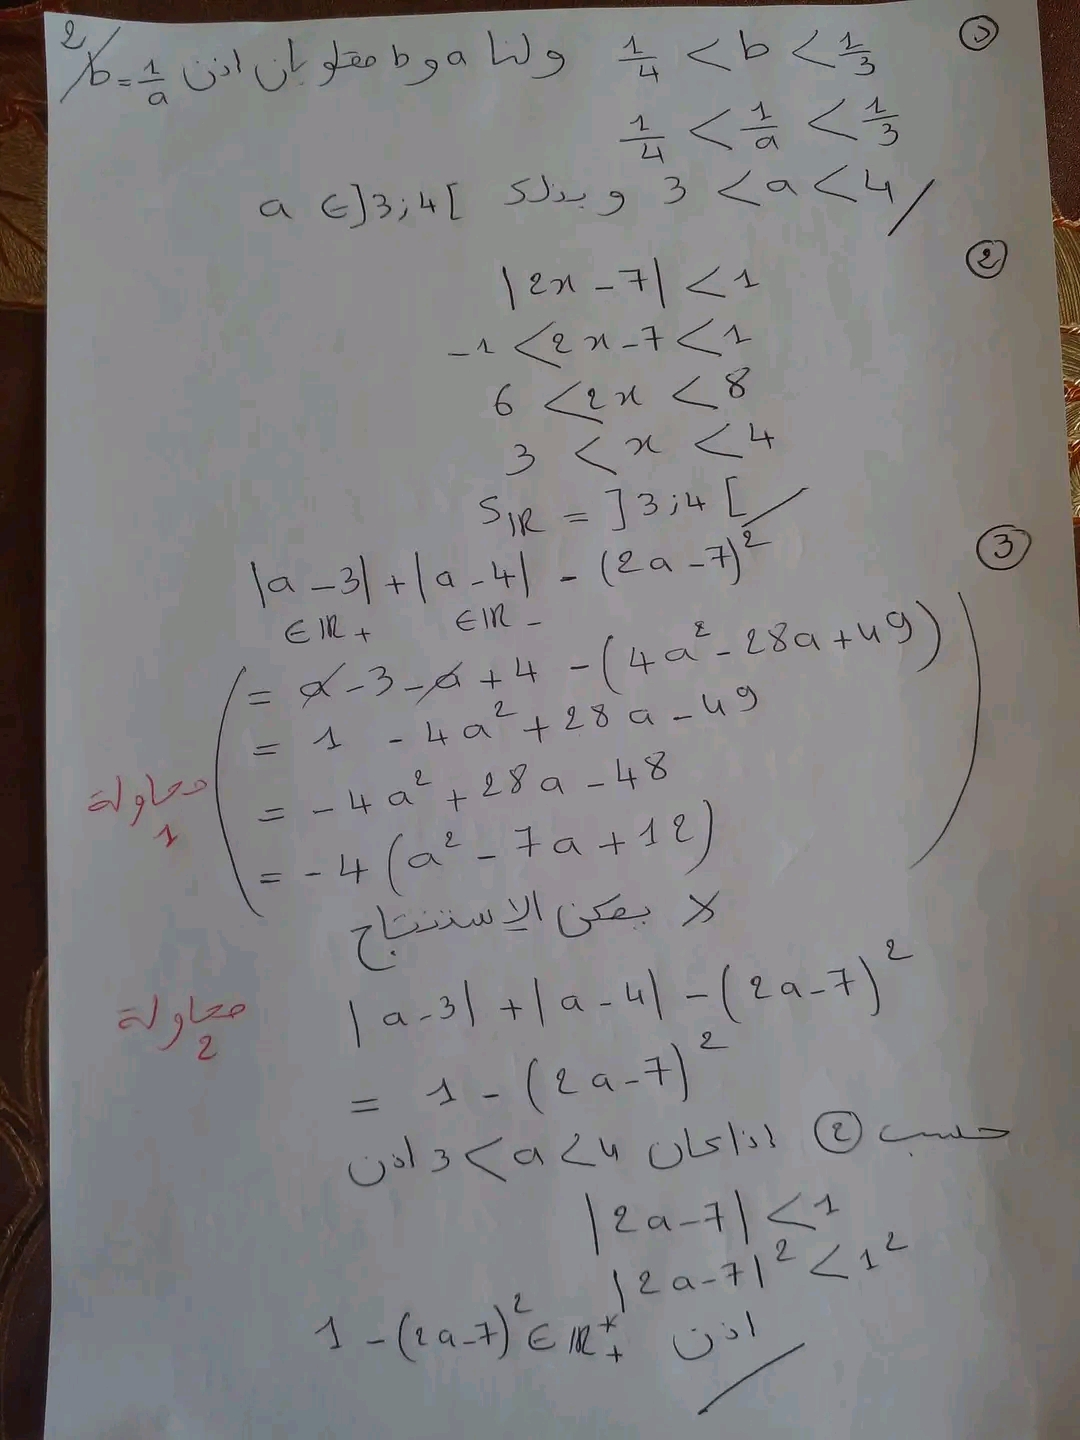 ① 1/4 < b < 1/3 ولنا a و b مقلوبان اذن b = 1/a 2/
1/4 < 1/a < 1/3
3 < a < 4 وبذلك a ∈ ]3;4[
②
|2x - 7| < 1
-1 < 2x - 7 < 1
6 < 2x < 8
3 < x < 4
S_IR = ]3;4[
③
|a - 3| + |a - 4| - (2a - 7)²
∈ IR+ ∈ IR-
= a - 3 - a + 4 - (4a² - 28a + 49)
= 1 - 4a² + 28a - 49
محاولة 1
= -4a² + 28a - 48
= -4(a² - 7a + 12)
لا يمكن الاستنتاج
محاولة 2
|a - 3| + |a - 4| - (2a - 7)²
= 1 - (2a - 7)²
حسب ② اذا كان 3 < a < 4 اذن
|2a - 7| < 1
|2a - 7|² < 1²
اذن 1 - (2a - 7)² ∈ IR*+